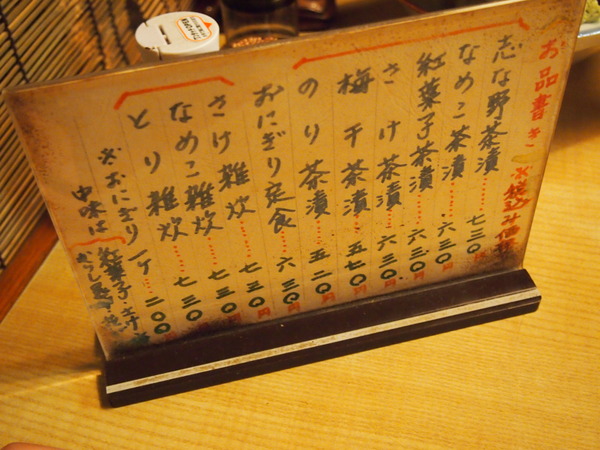 お品書き ※税込み価格
志な野茶漬……七三〇円
なめこ茶漬……六三〇円
紅葉子茶漬……六三〇円
さけ茶漬……六三〇円
梅干茶漬……五七〇円
のり茶漬……五二〇円
おにぎり定食……六三〇円
さけ雑炊……七三〇円
なめこ雑炊……七三〇円
とり雑炊……七三〇円
※おにぎり一ケ…二〇〇円
中味は
紅葉子・さけ